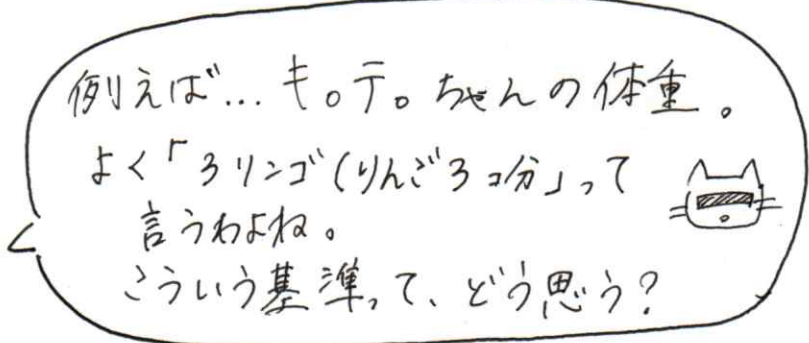 例えば…キ。テ。ちゃんの体重。
よく「3リンゴ(りんご3コ分」って
言うわよね。
こういう基準って、どう思う?